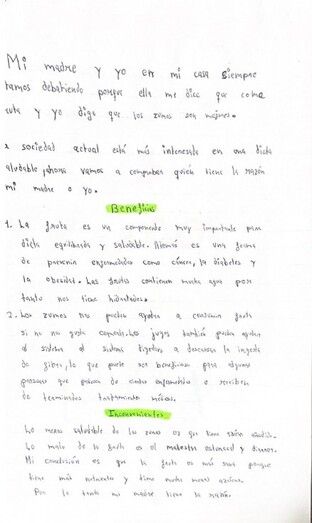 Mi madre y yo en mi casa siempre
tamos debatiendo porque ella me dice que coma
uta y yo digo que los zumos son mejores.
sociedad actual está más interesada en una dieta
aludable, ahora vamos a comprobar quién tiene la razón
mi madre o yo.
Beneficios
1. La fruta es un componente muy importante para
dieta equilibrada y saludable. Además es una forma
de prevenir enfermedades como cáncer, la diabetes y
la obesidad. Las frutas contienen mucha agua por
tanto nos tiene hidratados.
2. Los zumos nos pueden ayudar a consumir fruta
si no nos gusta comerla. Los jugos también puede ayudar
al sistema al sistema digestivo a descansar la ingesta
de fibra, lo que puede ser beneficioso para algunas
personas que padecen de ciertas enfermedades o reciben
de terminados tratamiento médicos.
Inconvenientes
Lo menos saludable de los zumos es que tiene azúcar añadido.
Lo malo de la fruta es el malestar estomacal y diarrea.
Mi conclusión es que la fruta es más sana porque
tiene más nutrientes y tiene mucho menos azúcar.
Por lo tanto mi madre tiene la razón.